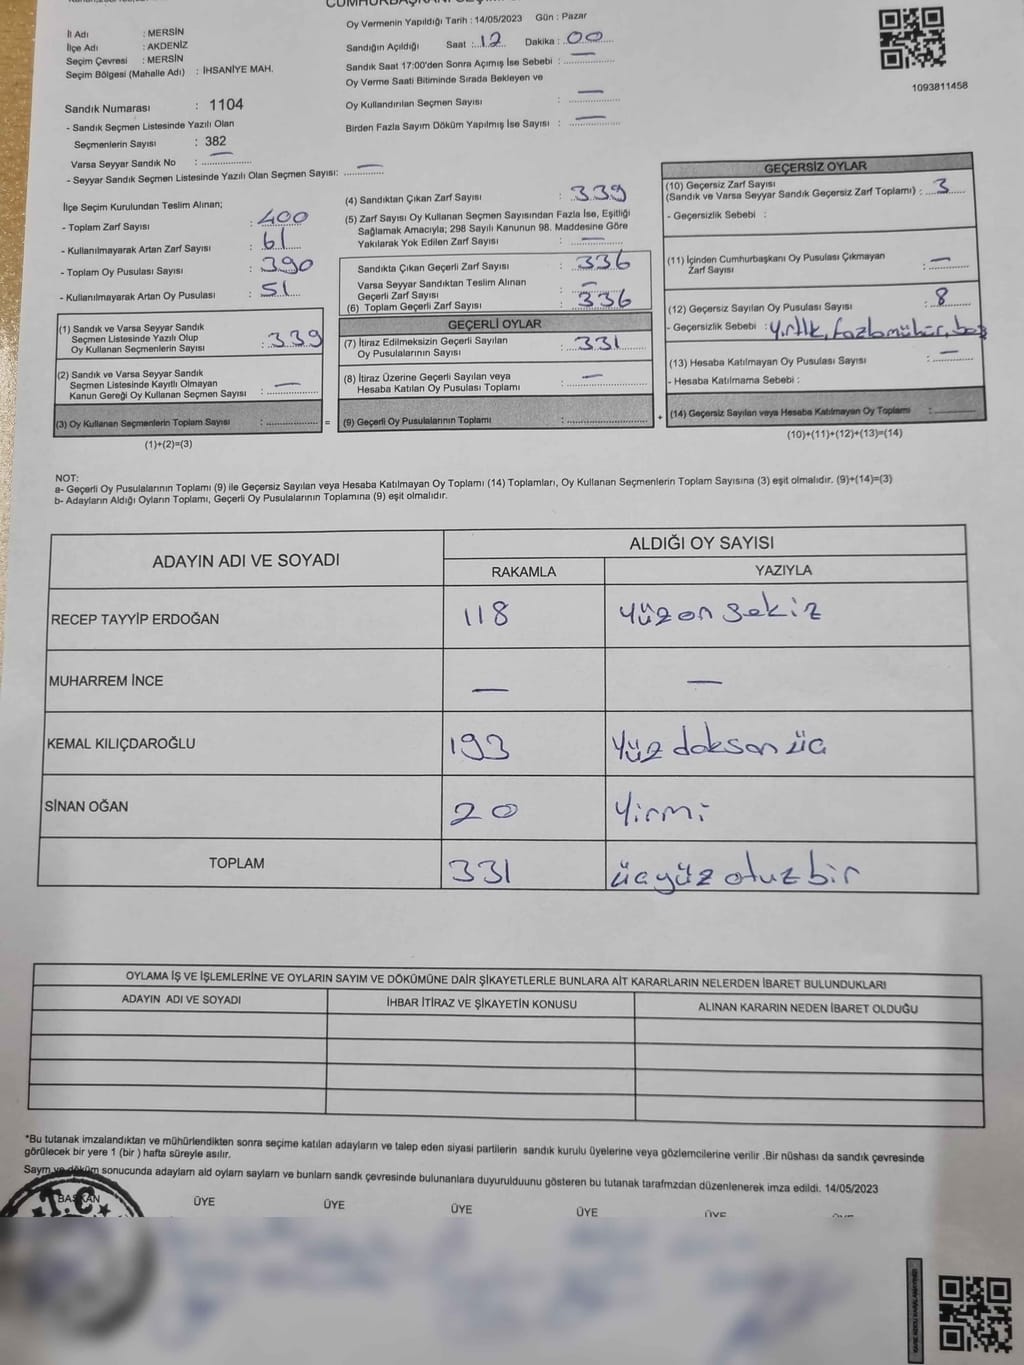 İl Adı : MERSİN
İlçe Adı : AKDENİZ
Seçim Çevresi : MERSİN
Seçim Bölgesi (Mahalle Adı) : İHSANİYE MAH.
Sandık Numarası : 1104
- Sandık Seçmen Listesinde Yazılı Olan
Seçmenlerin Sayısı : 382
Varsa Seyyar Sandık No : —
- Seyyar Sandık Seçmen Listesinde Yazılı Olan Seçmen Sayısı: —
Oy Vermenin Yapıldığı Tarih : 14/05/2023 Gün : Pazar
Sandığın Açıldığı Saat : 12 Dakika : 00
Sandık Saat 17:00'den Sonra Açımış İse Sebebi : —
Oy Verme Saati Bitiminde Sırada Bekleyen ve
Oy Kullandırılan Seçmen Sayısı : —
Birden Fazla Sayım Döküm Yapılmış İse Sayısı : —
1093811458
İlçe Seçim Kurulundan Teslim Alınan;
- Toplam Zarf Sayısı : 400
- Kullanılmayarak Artan Zarf Sayısı : 61
- Toplam Oy Pusulası Sayısı : 390
- Kullanılmayarak Artan Oy Pusulası : 51
(1) Sandık ve Varsa Seyyar Sandık
Seçmen Listesinde Yazılı Olup
Oy Kullanan Seçmenlerin Sayısı : 339
(2) Sandık ve Varsa Seyyar Sandık
Seçmen Listesinde Kayıtlı Olmayan
Kanun Gereği Oy Kullanan Seçmen Sayısı : —
(3) Oy Kullanan Seçmenlerin Toplam Sayısı : =
(1)+(2)=(3)
(4) Sandıktan Çıkan Zarf Sayısı : 339
(5) Zarf Sayısı Oy Kullanan Seçmen Sayısından Fazla İse, Eşitliği
Sağlamak Amacıyla; 298 Sayılı Kanunun 98. Maddesine Göre
Yakılarak Yok Edilen Zarf Sayısı : —
Sandıkta Çıkan Geçerli Zarf Sayısı : 336
Varsa Seyyar Sandıktan Teslim Alınan
Geçerli Zarf Sayısı : —
(6) Toplam Geçerli Zarf Sayısı : 336
GEÇERLİ OYLAR
(7) İtiraz Edilmeksizin Geçerli Sayılan
Oy Pusulalarının Sayısı : 331
(8) İtiraz Üzerine Geçerli Sayılan veya
Hesaba Katılan Oy Pusulası Toplamı : —
(9) Geçerli Oy Pusulalarının Toplamı : +
GEÇERSİZ OYLAR
(10) Geçersiz Zarf Sayısı
(Sandık ve Varsa Seyyar Sandık Geçersiz Zarf Toplamı) : 3
- Geçersizlik Sebebi :
(11) İçinden Cumhurbaşkanı Oy Pusulası Çıkmayan
Zarf Sayısı : —
(12) Geçersiz Sayılan Oy Pusulası Sayısı : 8
- Geçersizlik Sebebi : Yırtık, fazla mühür, boş
(13) Hesaba Katılmayan Oy Pusulası Sayısı : —
- Hesaba Katılmama Sebebi :
(14) Geçersiz Sayılan veya Hesaba Katılmayan Oy Toplamı :
(10)+(11)+(12)+(13)=(14)
NOT:
a- Geçerli Oy Pusulalarının Toplamı (9) ile Geçersiz Sayılan veya Hesaba Katılmayan Oy Toplamı (14) Toplamları, Oy Kullanan Seçmenlerin Toplam Sayısına (3) eşit olmalıdır. (9)+(14)=(3)
b- Adayların Aldığı Oyların Toplamı, Geçerli Oy Pusulalarının Toplamına (9) eşit olmalıdır.
ADAYIN ADI VE SOYADI
ALDIĞI OY SAYISI
RAKAMLA YAZIYLA
RECEP TAYYİP ERDOĞAN 118 Yüz on sekiz
MUHARREM İNCE — —
KEMAL KILIÇDAROĞLU 193 Yüz doksan üç
SİNAN OĞAN 20 Yirmi
TOPLAM 331 üçyüz otuz bir
OYLAMA İŞ VE İŞLEMLERİNE VE OYLARIN SAYIM VE DÖKÜMÜNE DAİR ŞİKAYETLERLE BUNLARA AİT KARARLARIN NELERDEN İBARET BULUNDUKLARI
ADAYIN ADI VE SOYADI İHBAR İTİRAZ VE ŞİKAYETİN KONUSU ALINAN KARARIN NEDEN İBARET OLDUĞU
*Bu tutanak imzalandıktan ve mühürlendikten sonra seçime katılan adayların ve talep eden siyasi partilerin sandık kurulu üyelerine veya gözlemcilerine verilir .Bir nüshası da sandık çevresinde
görülecek bir yere 1 (bir ) hafta süreyle asılır.
Saym ve döküm sonucunda adaylarn ald oylarn saylarn ve bunlarn sandk çevresinde bulunanlara duyurulduunu gösteren bu tutanak tarafmzdan düzenlenerek imza edildi. 14/05/2023
BAŞKAN ÜYE ÜYE ÜYE ÜYE ÜYE
T.C.